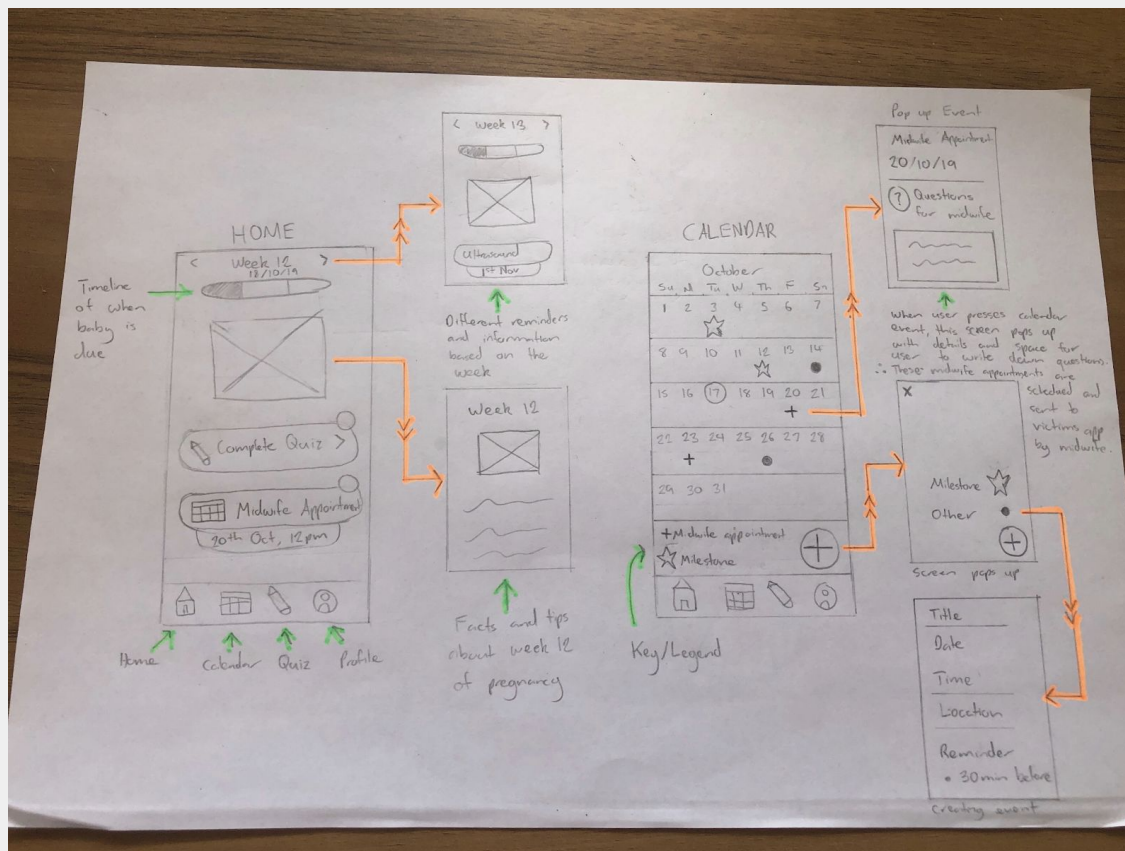 HOME
< Week 12 >
18/10/19
Complete Quiz >
Midwife Appointment
20th Oct, 12pm
Timeline
of when
baby is
due
Home
Calendar
Quiz
Profile
< Week 13 >
Ultrasound
1st Nov
Different reminders
and information
based on the
week
Week 12
Facts and tips
about week 12
of pregnancy
CALENDAR
October
Su M Tu W Th F Sa
1 2 3 4 5 6 7
8 9 10 11 12 13 14
15 16 17 18 19 20 21
22 23 24 25 26 27 28
29 30 31
+ Midwife appointment
Milestone
+
Key/Legend
Pop up Event
Midwife Appointment
20/10/19
? Questions
for midwife
when user presses calendar
event, this screen pops up
with details and space for
user to write down questions.
∴ These midwife appointments are
scheduled and
sent to
victims app
by midwife.
X
Milestone
Other
+
Screen pops up
Title
Date
Time
Location
Reminder
• 30min before
Creating event